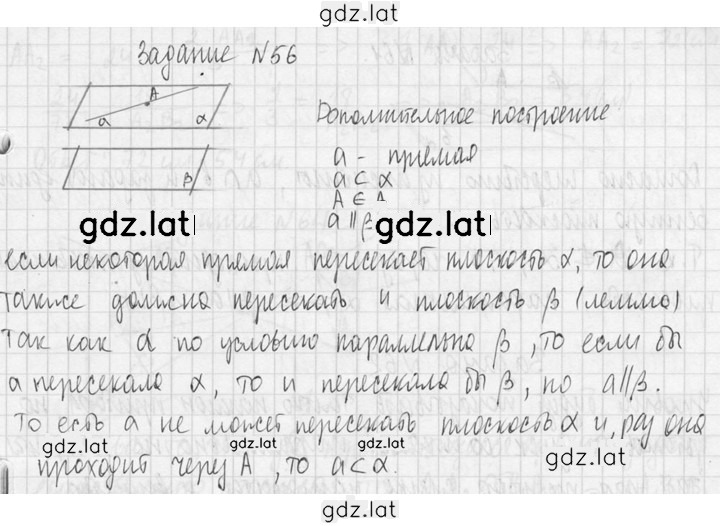 gdz.lat
Задание №56
A
a
α
β
Дополнительное построение
a - прямая
a ⊂ α
A ∈ Δ
a || β
gdz.lat gdz.lat
если некоторая прямая пересекает плоскость α, то она
также должна пересекать и плоскость β (лемма)
Так как α по условию параллельна β, то если бы
а пересекала α, то и пересекала бы β, но a||β.
То есть a не может пересекать плоскость α и, раз она
gdz.lat gdz.lat gdz.lat
проходит через A, то a⊂α.
gdz.lat